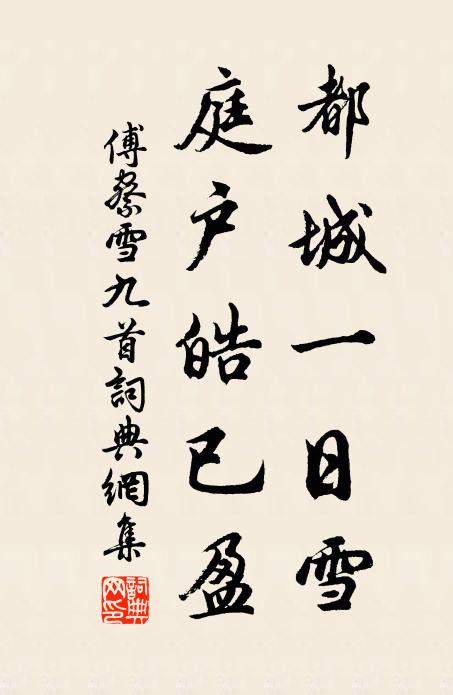 都城一日雪
庭户皓已盈
傅察雪九首詞典網集
詞典
网印